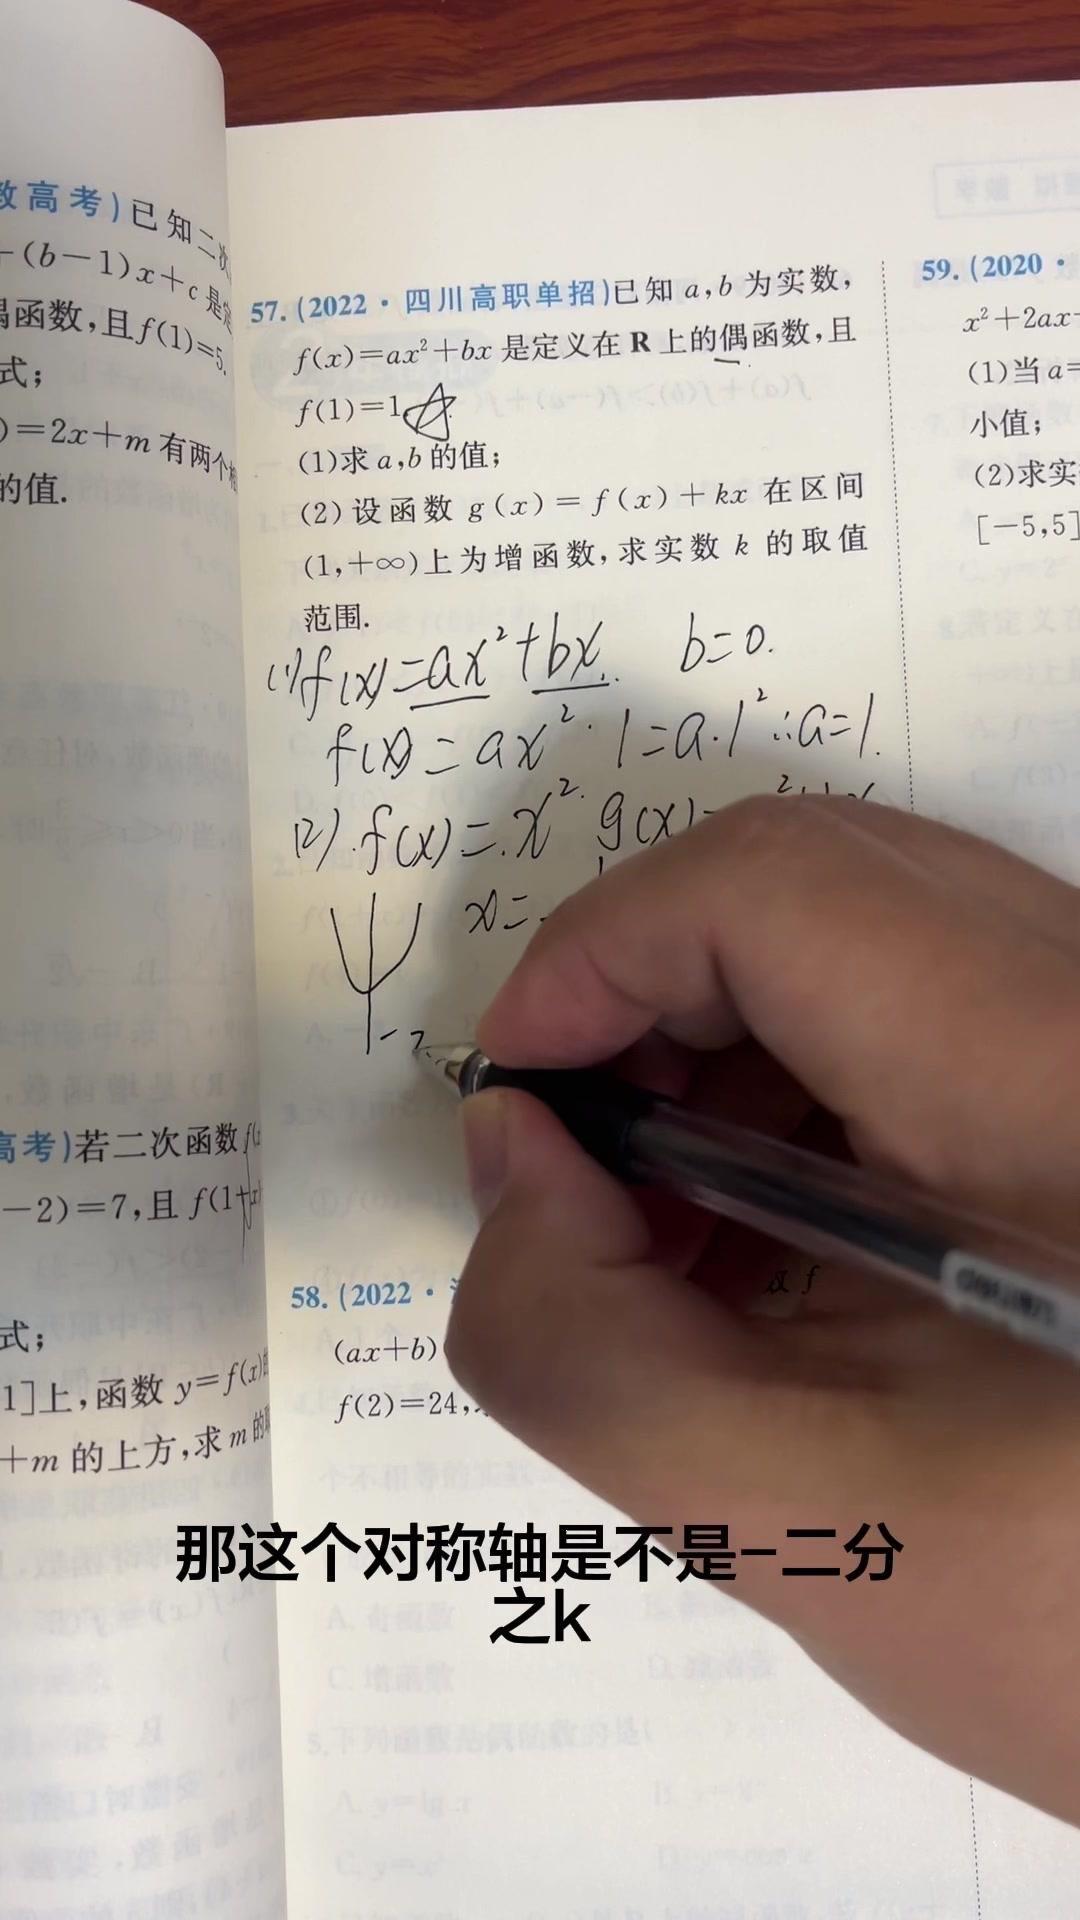 数高考)已知二次
+(b-1)x+c是定
偶函数,且f(1)=5.
式;
)=2x+m有两个相
的值.
高考)若二次函数f(x
-2)=7,且f(1+x)
式;
1]上,函数y=f(x)的
+m的上方,求m的取
57.(2022·四川高职单招)已知a,b为实数,
f(x)=ax²+bx是定义在R上的偶函数,且
f(1)=1
(1)求a,b的值;
(2)设函数g(x)=f(x)+kx在区间
(1,+∞)上为增函数,求实数k的取值
范围.
(1)f(x)=ax²+bx. b=0.
f(x)=ax². 1=a·1² ∴a=1.
(2).f(x)=x². g(x)=
x=-
58.(2022·
(ax+b)
f(2)=24,
59.(2020·
x²+2ax-
(1)当a=
小值;
(2)求实
[-5,5]
那这个对称轴是不是-二分
之k